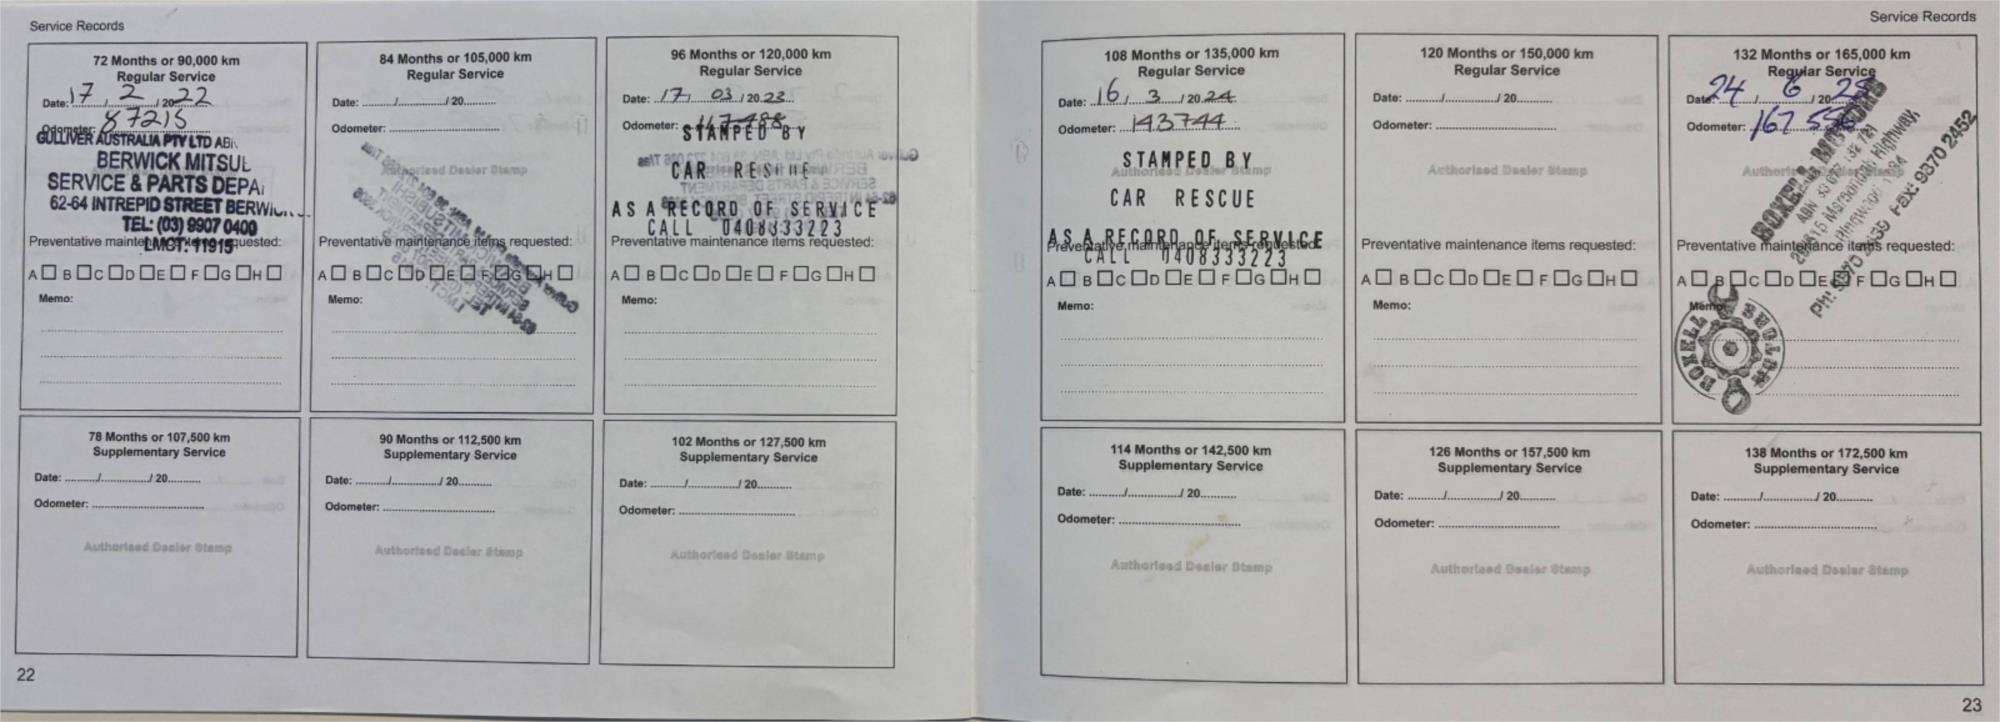 Service Records
72 Months or 90,000 km
Regular Service
Date: 17 / 2 / 2022
Odometer: 87215
GULLIVER AUSTRALIA PTY LTD ABN
BERWICK MITSUB
SERVICE & PARTS DEPA
62-64 INTREPID STREET BERWICK
TEL: (03) 9907 0400
LMCT: 11915
Preventative maintenance items requested:
A B C D E F G H
Memo:
84 Months or 105,000 km
Regular Service
Date: / / 20
Odometer:
Authorised Dealer Stamp
Preventative maintenance items requested:
A B C D E F G H
Memo:
96 Months or 120,000 km
Regular Service
Date: 17 / 03 / 2023
Odometer:
STAMPED BY
CAR RESCUE
AS A RECORD OF SERVICE
CALL 0408333223
Preventative maintenance items requested:
A B C D E F G H
Memo:
78 Months or 107,500 km
Supplementary Service
Date: / / 20
Odometer:
Authorised Dealer Stamp
90 Months or 112,500 km
Supplementary Service
Date: / / 20
Odometer:
Authorised Dealer Stamp
102 Months or 127,500 km
Supplementary Service
Date: / / 20
Odometer:
Authorised Dealer Stamp
22
Service Records
108 Months or 135,000 km
Regular Service
Date: 16 / 3 / 2024
Odometer: 143744
Authorised Dealer Stamp
STAMPED BY
CAR RESCUE
AS A RECORD OF SERVICE
CALL 0408333223
Preventative maintenance items requested:
A B C D E F G H
Memo:
120 Months or 150,000 km
Regular Service
Date: / / 20
Odometer:
Authorised Dealer Stamp
Preventative maintenance items requested:
A B C D E F G H
Memo:
132 Months or 165,000 km
Regular Service
Date: 24 / 6 / 2025
Odometer: 167 556
BOXELL MOTORS
Maroondah Highway,
Ringwood 3134
Ph: 9870 2639 Fax: 9870 2452
Preventative maintenance items requested:
A B C D E F G H
Memo:
BOXELL MOTORS
114 Months or 142,500 km
Supplementary Service
Date: / / 20
Odometer:
Authorised Dealer Stamp
126 Months or 157,500 km
Supplementary Service
Date: / / 20
Odometer:
Authorised Dealer Stamp
138 Months or 172,500 km
Supplementary Service
Date: / / 20
Odometer:
Authorised Dealer Stamp
23